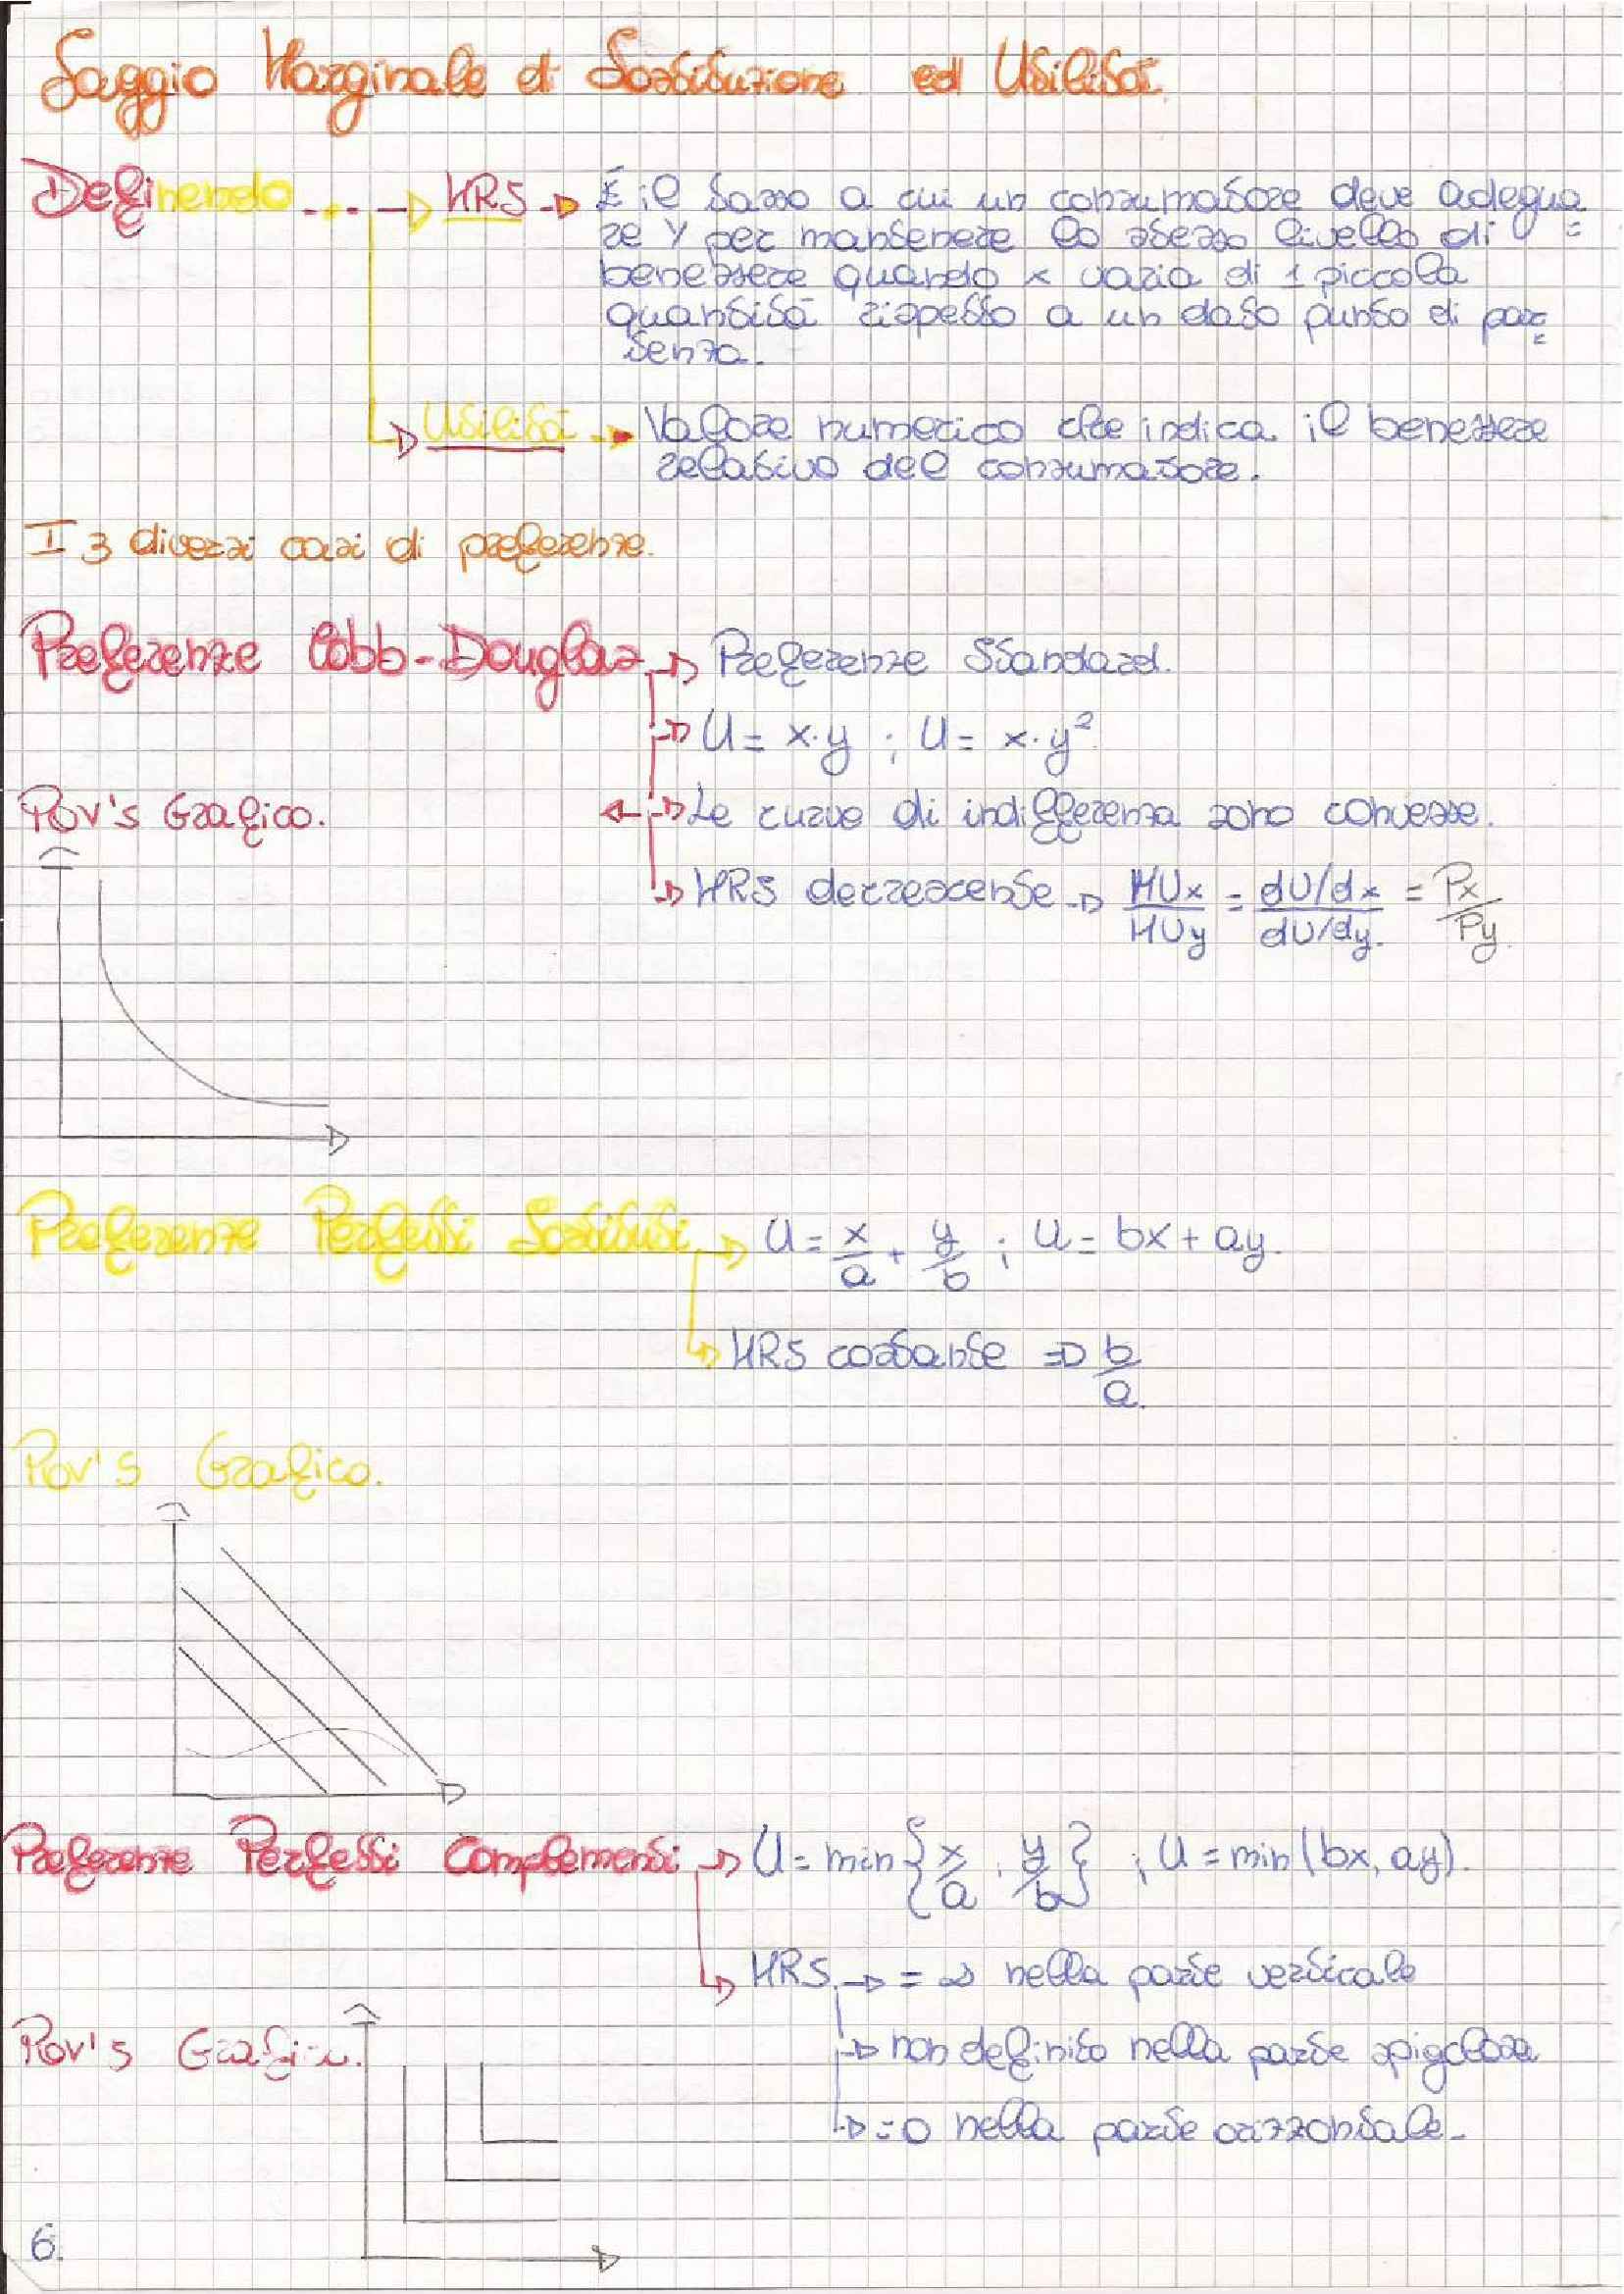 Saggio Marginale di Sostituzione ed Utilità.
Definendo ... → MRS → È il tasso a cui un consumatore deve adegua=
re Y per mantenere lo stesso livello di
benessere quando x varia di 1 piccola
quantità rispetto a un dato punto di par=
tenza.
Utilità → Valore numerico che indica il benessere
relativo del consumatore.
I 3 diversi casi di preferenze.
Preferenze Cobb-Douglas → Preferenze Standard.
→ U = x·y ; U = x·y²
Pov's Grafico. ← → Le curve di indifferenza sono convesse.
→ MRS decrescente → MUx/MUy = dU/dx / dU/dy. = Px/Py
Preferenze Perfetti Sostituti → U = x/a + y/b ; U = bx + ay.
→ MRS costante => b/a.
Pov's Grafico.
Preferenze Perfetti Complementi → U = min{x/a, y/b} ; U = min(bx, ay).
→ MRS → = ∞ nella parte verticale
Pov's Grafico. → non definito nella parte spigolosa
→ = 0 nella parte orizzontale.
6.